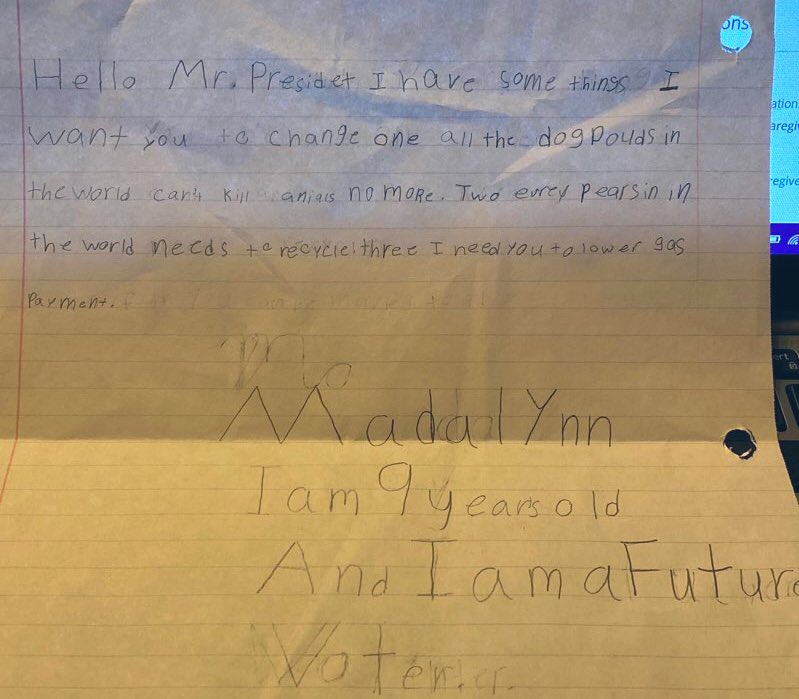 Hello Mr. Presidet I have some things I
want you to change one all the dog Pouds in
the world can't kill anials no more. Two eurey pearsin in
the world needs to recycle! three I need you to lower gas
Payment.
Mo
Madalynn
I am 9 years old
And I am a Future
Voter.
ons
ation
aregi
regive